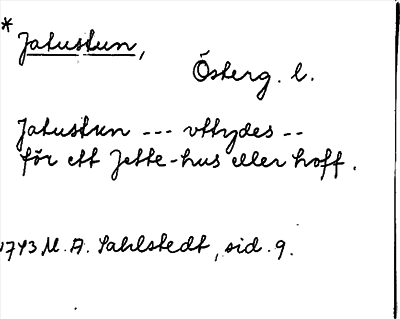 * Jatustun,
Österg. l.
Jatustun --- vttydes --
för ett Jette-hus eller hoff.
1743 M. A. Sahlstedt, sid. 9.